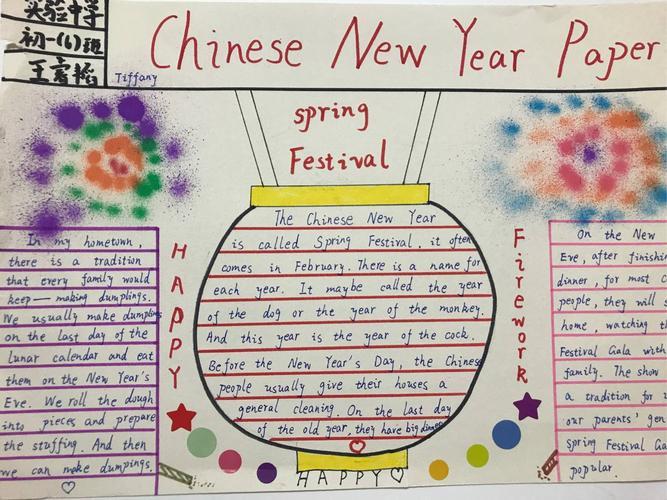 实验中学
初一(6)班
Tiffany
Chinese New Year Paper
spring
Festival
In my hometown,
there is a tradition
that every family would
keep — making dumplings.
We usually make dumplings
on the last day of the
lunar calendar and eat
them on the New Year's
Eve. We roll the dough
into pieces and prepare
the stuffing. And then
we can make dumpings.
HAPPY
The Chinese New Year
is called Spring Festival, it often
comes in February. There is a name for
each year. It maybe called the year
of the dog or the year of the monkey.
And this year is the year of the cock.
Before the New Year's Day, the Chinese
people usually give their houses a
general cleaning. On the last day
of the old year, they have big dinner
HAPPY
Firework
On the New
Eve, after
dinner, for most
people, they will
home, watching
Festival Gala with
family. The show
a tradition for
our parents'
Spring Festival
popular.